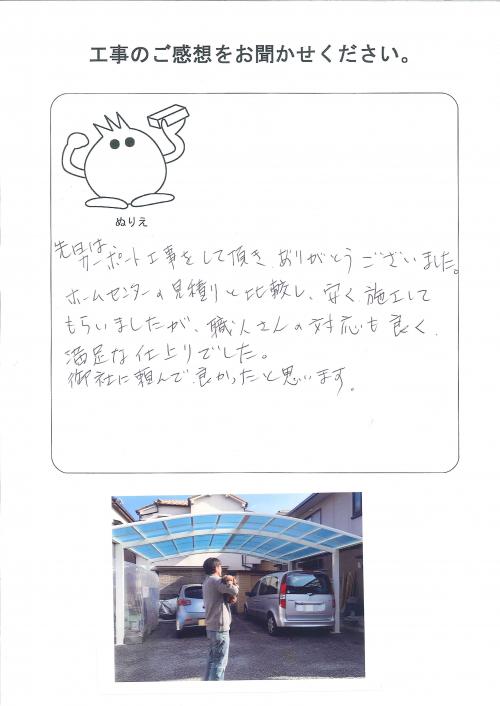 工事のご感想をお聞かせください。
ぬりえ
先日は
カーポート工事をして頂き ありがとうございました。
ホームセンターの見積りと比較し、安く施工して
もらいましたが、職人さんの対応も良く、
満足な仕上りでした。
御社に頼んで良かったと思います。